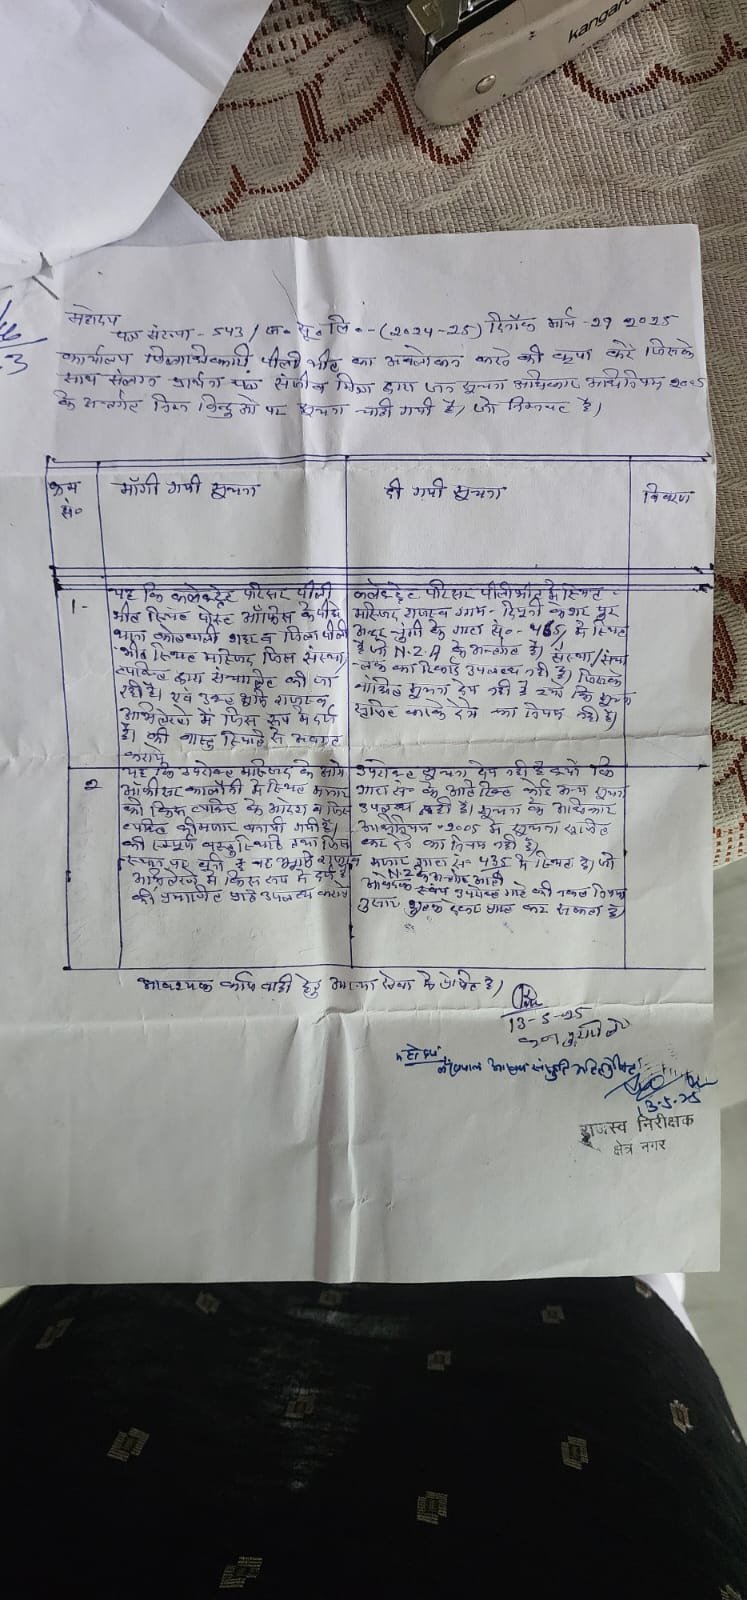 kangaro
महोदय
पत्र संख्या - 543 / ज० सू० लि० - (2024-25) दिनाँक मार्च - 29 2025
कार्यालय जिलाधिकारी पीलीभीत का अवलोकन करने की कृपा करें जिसके
साथ संलग्न प्रार्थना पत्र द्वारा जन सूचना अधिकार अधिनियम 2005
के अन्तर्गत निम्न बिन्दुओं पर सूचना चाही गयी है। जो निम्नवत है।
क्रम सं०
माँगी गयी सूचना
दी गयी सूचना
विवरण
1-
यह कि कलेक्ट्रेट परिसर पीली
भीत स्थित पोस्ट ऑफिस के पीछे
थाना कोतवाली शहर व जिला पीली
भीत स्थित मस्जिद किस संस्था/
व्यक्ति द्वारा संचालित की जा
रही है। एवं उक्त राजस्व
अभिलेखों में किस रूप में दर्ज
है। की वास्तु स्थिति से अवगत
कराये
कलेक्ट्रेट परिसर पीलीभीत में स्थित
मस्जिद राजस्व ग्राम -
के गाटा सं० - 465, में स्थित
है जो N.Z.A के अन्तर्गत है। संस्था/संचा
लक का रिकार्ड उपलब्ध नहीं है। जिसके
वांछित सूचना देय नहीं है क्यों कि सूचना
सृजित करके देने का नियम नहीं है।
2
यह कि उपरोक्त मस्जिद के आगे
ऑफीसर कालोनी में स्थित मजार
को किस व्यक्ति के आदेश व किस
व्यक्ति की मजार बनायी गयी है।
की सम्पूर्ण वस्तु स्थिति तथा किस
स्थान पर बनी है यह राजस्व
अभिलेखों में किस रूप में दर्ज है
की प्रमाणित प्रति उपलब्ध कराये
उपरोक्त सूचना देय नहीं है क्यों कि
गाटा सं० के अतिरिक्त कोई अन्य सूचना
उपलब्ध नहीं है। सूचना के अधिकार
अधिनियम - 2005 में सूचना सृजित
कर देने का नियम नहीं है।
मजार गाटा सं० 435 में स्थित है। जो
N.Z.A के अन्तर्गत
आवेदक स्वयं उपरोक्त गाटे की नकल नियमा
नुसार शुल्क देकर प्राप्त कर सकता है।
आवश्यक कार्यवाही हेतु आख्या सेवा में प्रेषित है।
13-5-25
महोदय
13.5.25
राजस्व निरीक्षक
क्षेत्र नगर